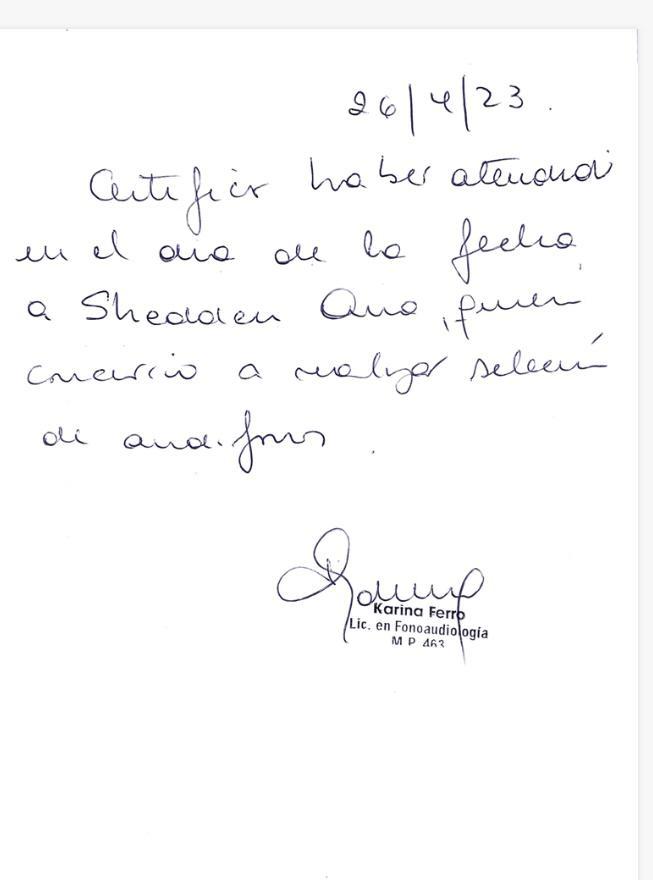 26/4/23.
Certifico haber atendido
en el dia de la fecha
a Shedden Ana, quien
concurrió a realizar selección
de audífonos.
Karina Ferro
Lic. en Fonoaudiología
M P 463